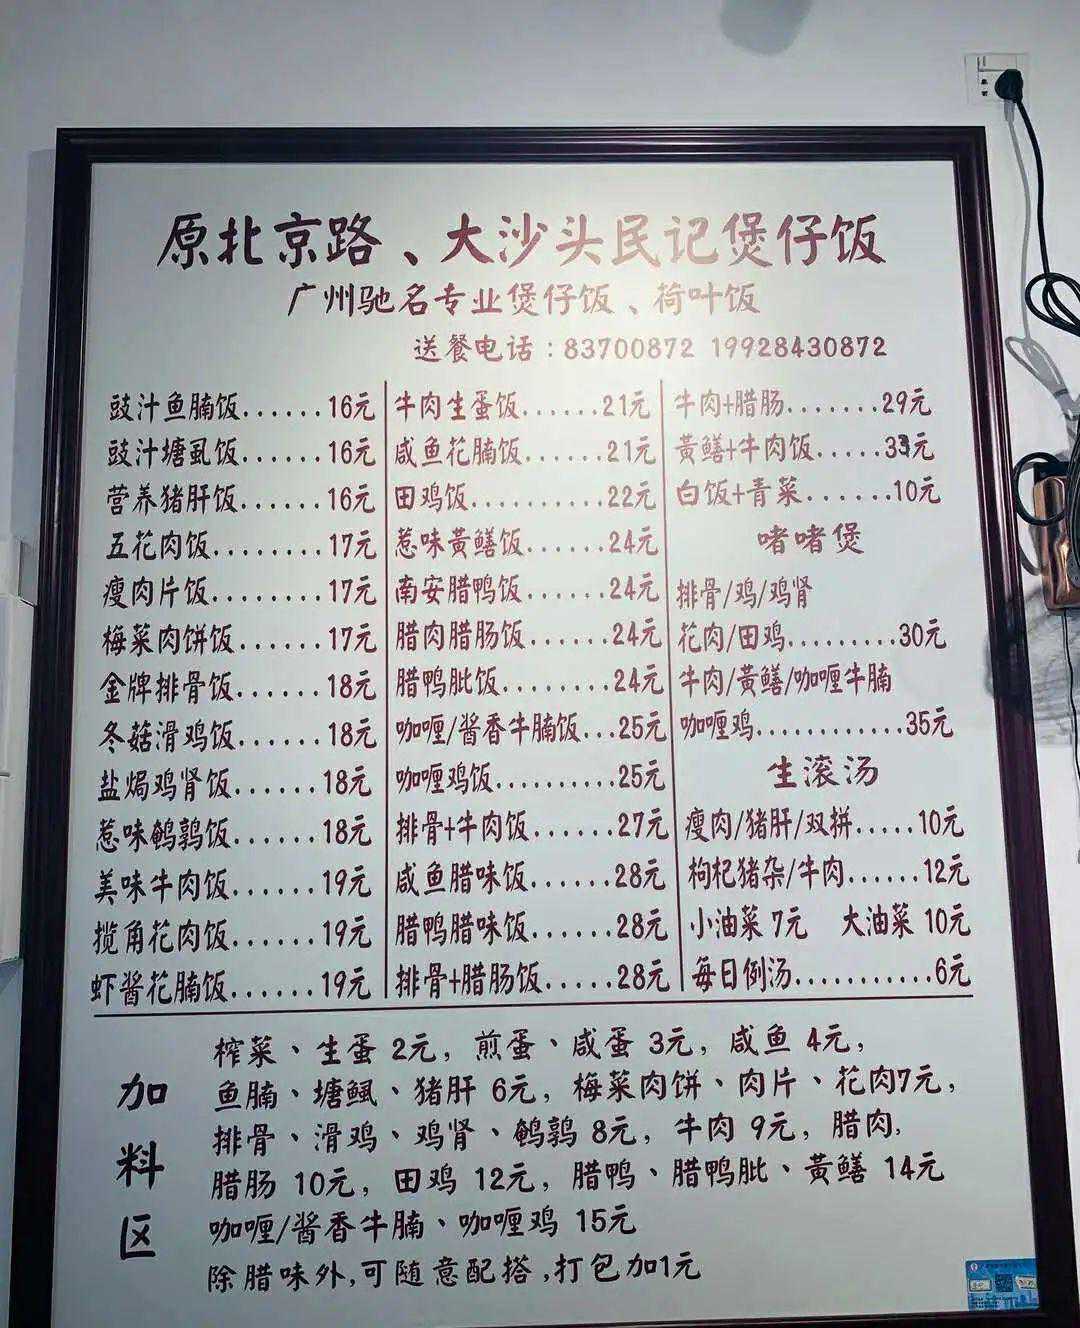 原北京路、大沙头民记煲仔饭
广州驰名专业煲仔饭、荷叶饭
送餐电话：83700872 19928430872
豉汁鱼腩饭......16元
豉汁塘虱饭......16元
营养猪肝饭......16元
五花肉饭........17元
瘦肉片饭........17元
梅菜肉饼饭......17元
金牌排骨饭......18元
冬菇滑鸡饭......18元
盐焗鸡肾饭......18元
惹味鹌鹑饭......18元
美味牛肉饭......19元
揽角花肉饭......19元
虾酱花腩饭......19元
牛肉生蛋饭......21元
咸鱼花腩饭......21元
田鸡饭.........22元
惹味黄鳝饭......24元
南安腊鸭饭......24元
腊肉腊肠饭......24元
腊鸭肶饭........24元
咖喱/酱香牛腩饭...25元
咖喱鸡饭........25元
排骨+牛肉饭......27元
咸鱼腊味饭......28元
腊鸭腊味饭......28元
排骨+腊肠饭......28元
牛肉+腊肠.......29元
黄鳝+牛肉饭.....33元
白饭+青菜.......10元
啫啫煲
排骨/鸡/鸡肾
花肉/田鸡.........30元
牛肉/黄鳝/咖喱牛腩
咖喱鸡............35元
生滚汤
瘦肉/猪肝/双拼.....10元
枸杞猪杂/牛肉......12元
小油菜 7元 大油菜 10元
每日例汤...........6元
加料区
榨菜、生蛋 2元，煎蛋、咸蛋 3元，咸鱼 4元，
鱼腩、塘鲺、猪肝 6元，梅菜肉饼、肉片、花肉7元，
排骨、滑鸡、鸡肾、鹌鹑 8元，牛肉 9元，腊肉，
腊肠 10元，田鸡 12元，腊鸭、腊鸭肶、黄鳝 14元
咖喱/酱香牛腩、咖喱鸡 15元
除腊味外，可随意配搭，打包加1元